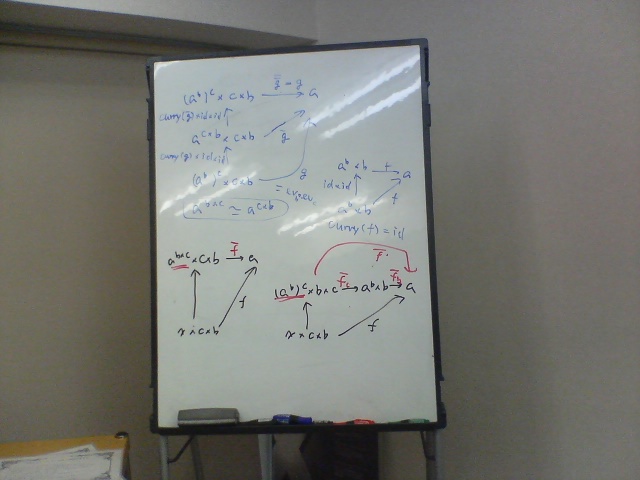 (aᵇ)ᶜ × c×b → a
curry(g)×id×id ↑
a^{c×b} × c×b
curry(g)×id×id ↑
(aᵇ)ᶜ × c×b
g
a^{b×c} ≃ a^{c×b}
aᵇ × b → a
id×id ↑ f
aᵇ × b
curry(f) = id
a^{b×c} × c×b → f̅ a
f
x × c×b
(aᵇ)ᶜ × b × c → aᵇ × b → a
f
x × c×b